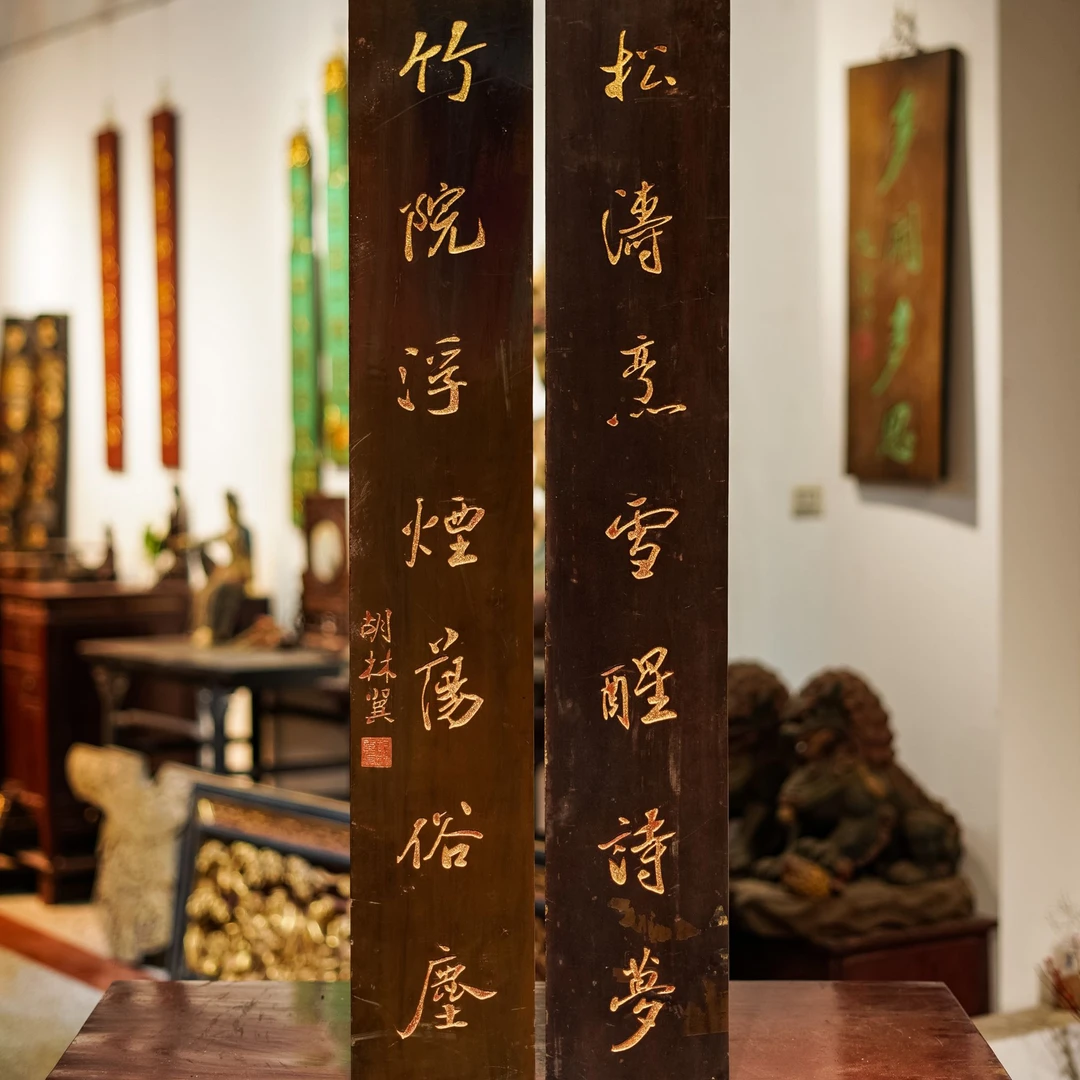 松濤烹雪醒詩夢
竹院浮煙蕩俗塵
胡林翼